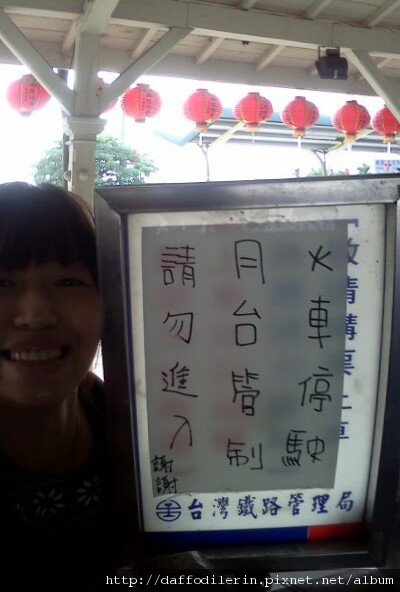 火車停駛
月台管制
請勿進入
謝謝
台灣鐵路管理局
http://daffodilerin.pixnet.net/album